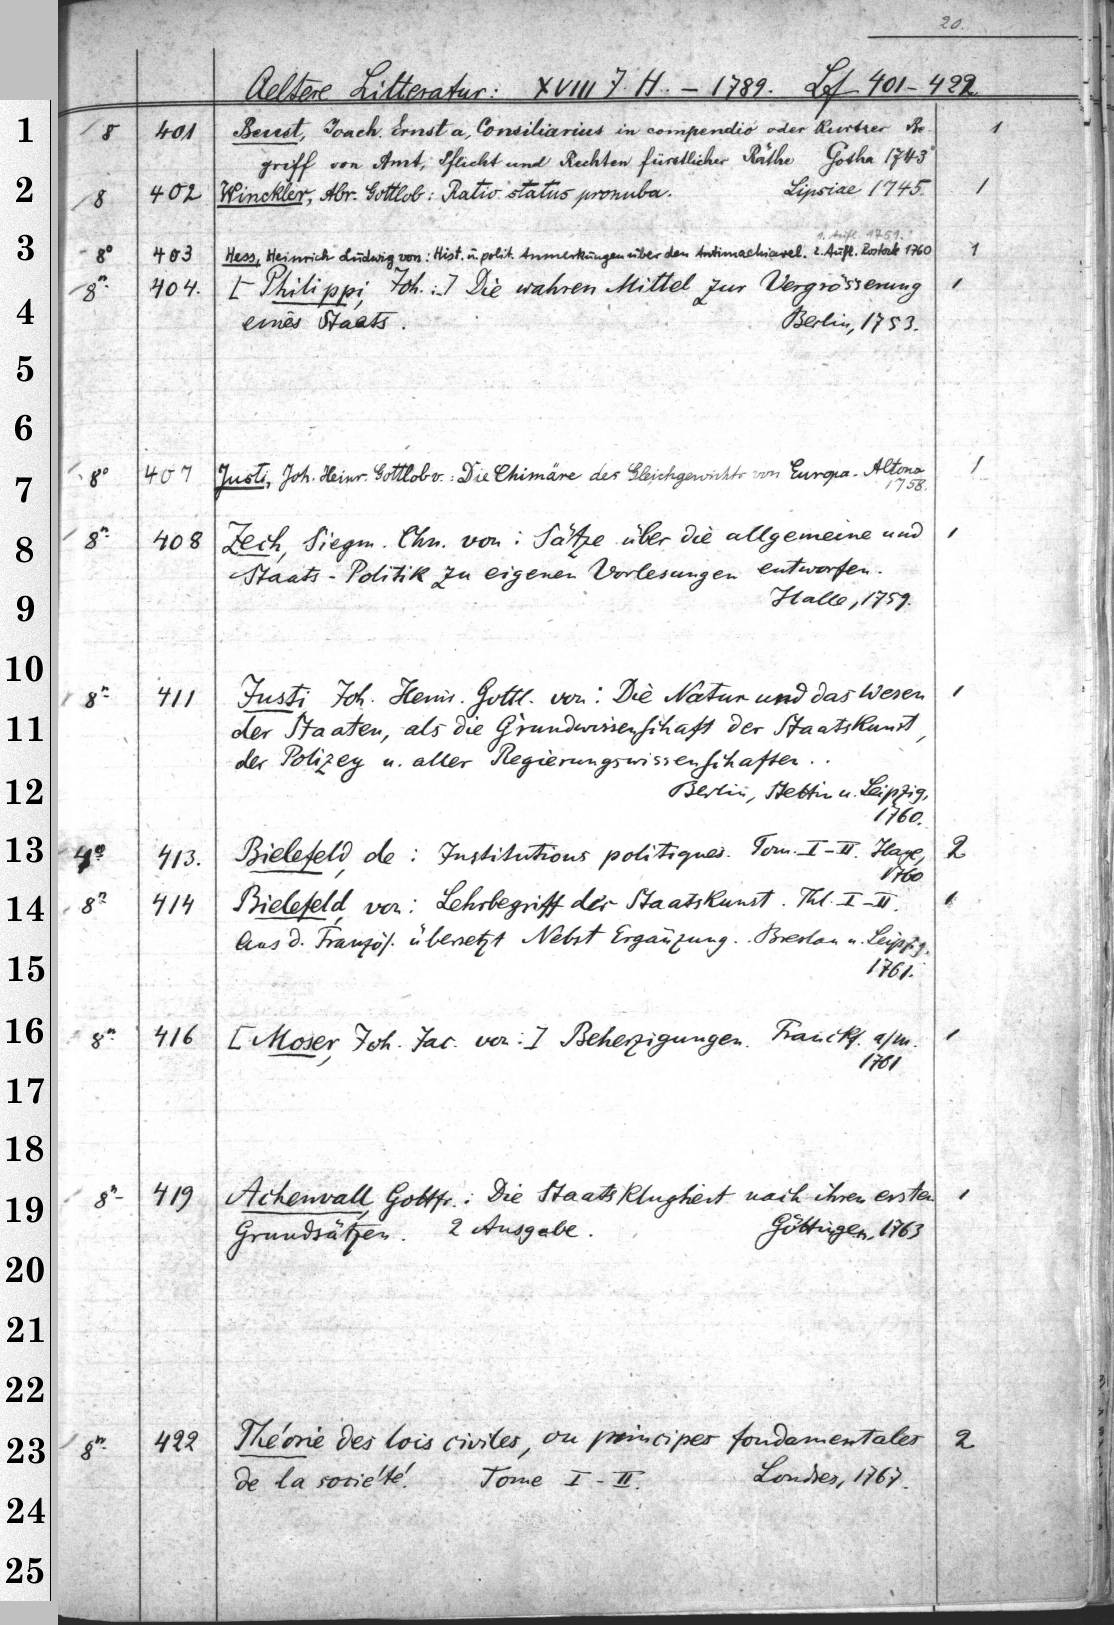 20.
Aeltere Litteratur: XVIII J. H. – 1789. Lof 401–422
1 8 401 Beust, Joach. Ernst a, Consiliarius in compendio oder Kurtzer Be- 1
griff von Amt, Pflicht und Rechten fürstlicher Räthe Gotha 1743
2 8 402 Winckler, Abr. Gottlob: Ratio status pronuba. Lipsiae 1745. 1
1. Aufl. 1751.
3 8° 403 Hess, Heinrich Ludwig von: Hist. u. polit. Anmerkungen über den Antimachiavel. 2. Aufl. Rostock 1760 1
8° 404. [Philippi, Joh.:] Die wahren Mittel zur Vergrösserung 1
4 eines Staats. Berlin, 1753.
5
6
7 8° 407 Justi, Joh. Heinr. Gottlob v.: Die Chimäre des Gleichgewichts von Europa. Altona 1
1758.
8 8° 408 Zech, Siegm. Chn. von: Sätze über die allgemeine und 1
Staats-Politik zu eigenen Vorlesungen entworfen.
9 Halle, 1759.
10
8° 411 Justi Joh. Heinr. Gottl. von: Die Natur und das Wesen 1
11 der Staaten, als die Grundwissenschaft der Staatskunst,
der Polizey u. aller Regierungswissenschaften..
12 Berlin, Stettin u. Leipzig,
1760.
13 4° 413. Bielefeld, de: Institutions politiques. Tom. I–II. Haye, 2
1760
14 8° 414 Bielefeld, von: Lehrbegriff der Staatskunst. Thl. I–II. 1
Aus d. Französ. übersetzt Nebst Ergänzung. Breslau u. Leipzig.
15 1761.
16 8° 416 [Moser, Joh. Jac. von:] Beherzigungen. Franckf. a/m. 1
1761
17
18
19 8° 419 Achenwall, Gottfr.: Die Staatsklugheit nach ihren ersten 1
Grundsätzen. 2 Ausgabe. Göttingen, 1763
20
21
22
23 8° 422 Théorie des lois civiles, ou principes fondamentales 2
de la société. Tome I–II. Londres, 1767.
24
25